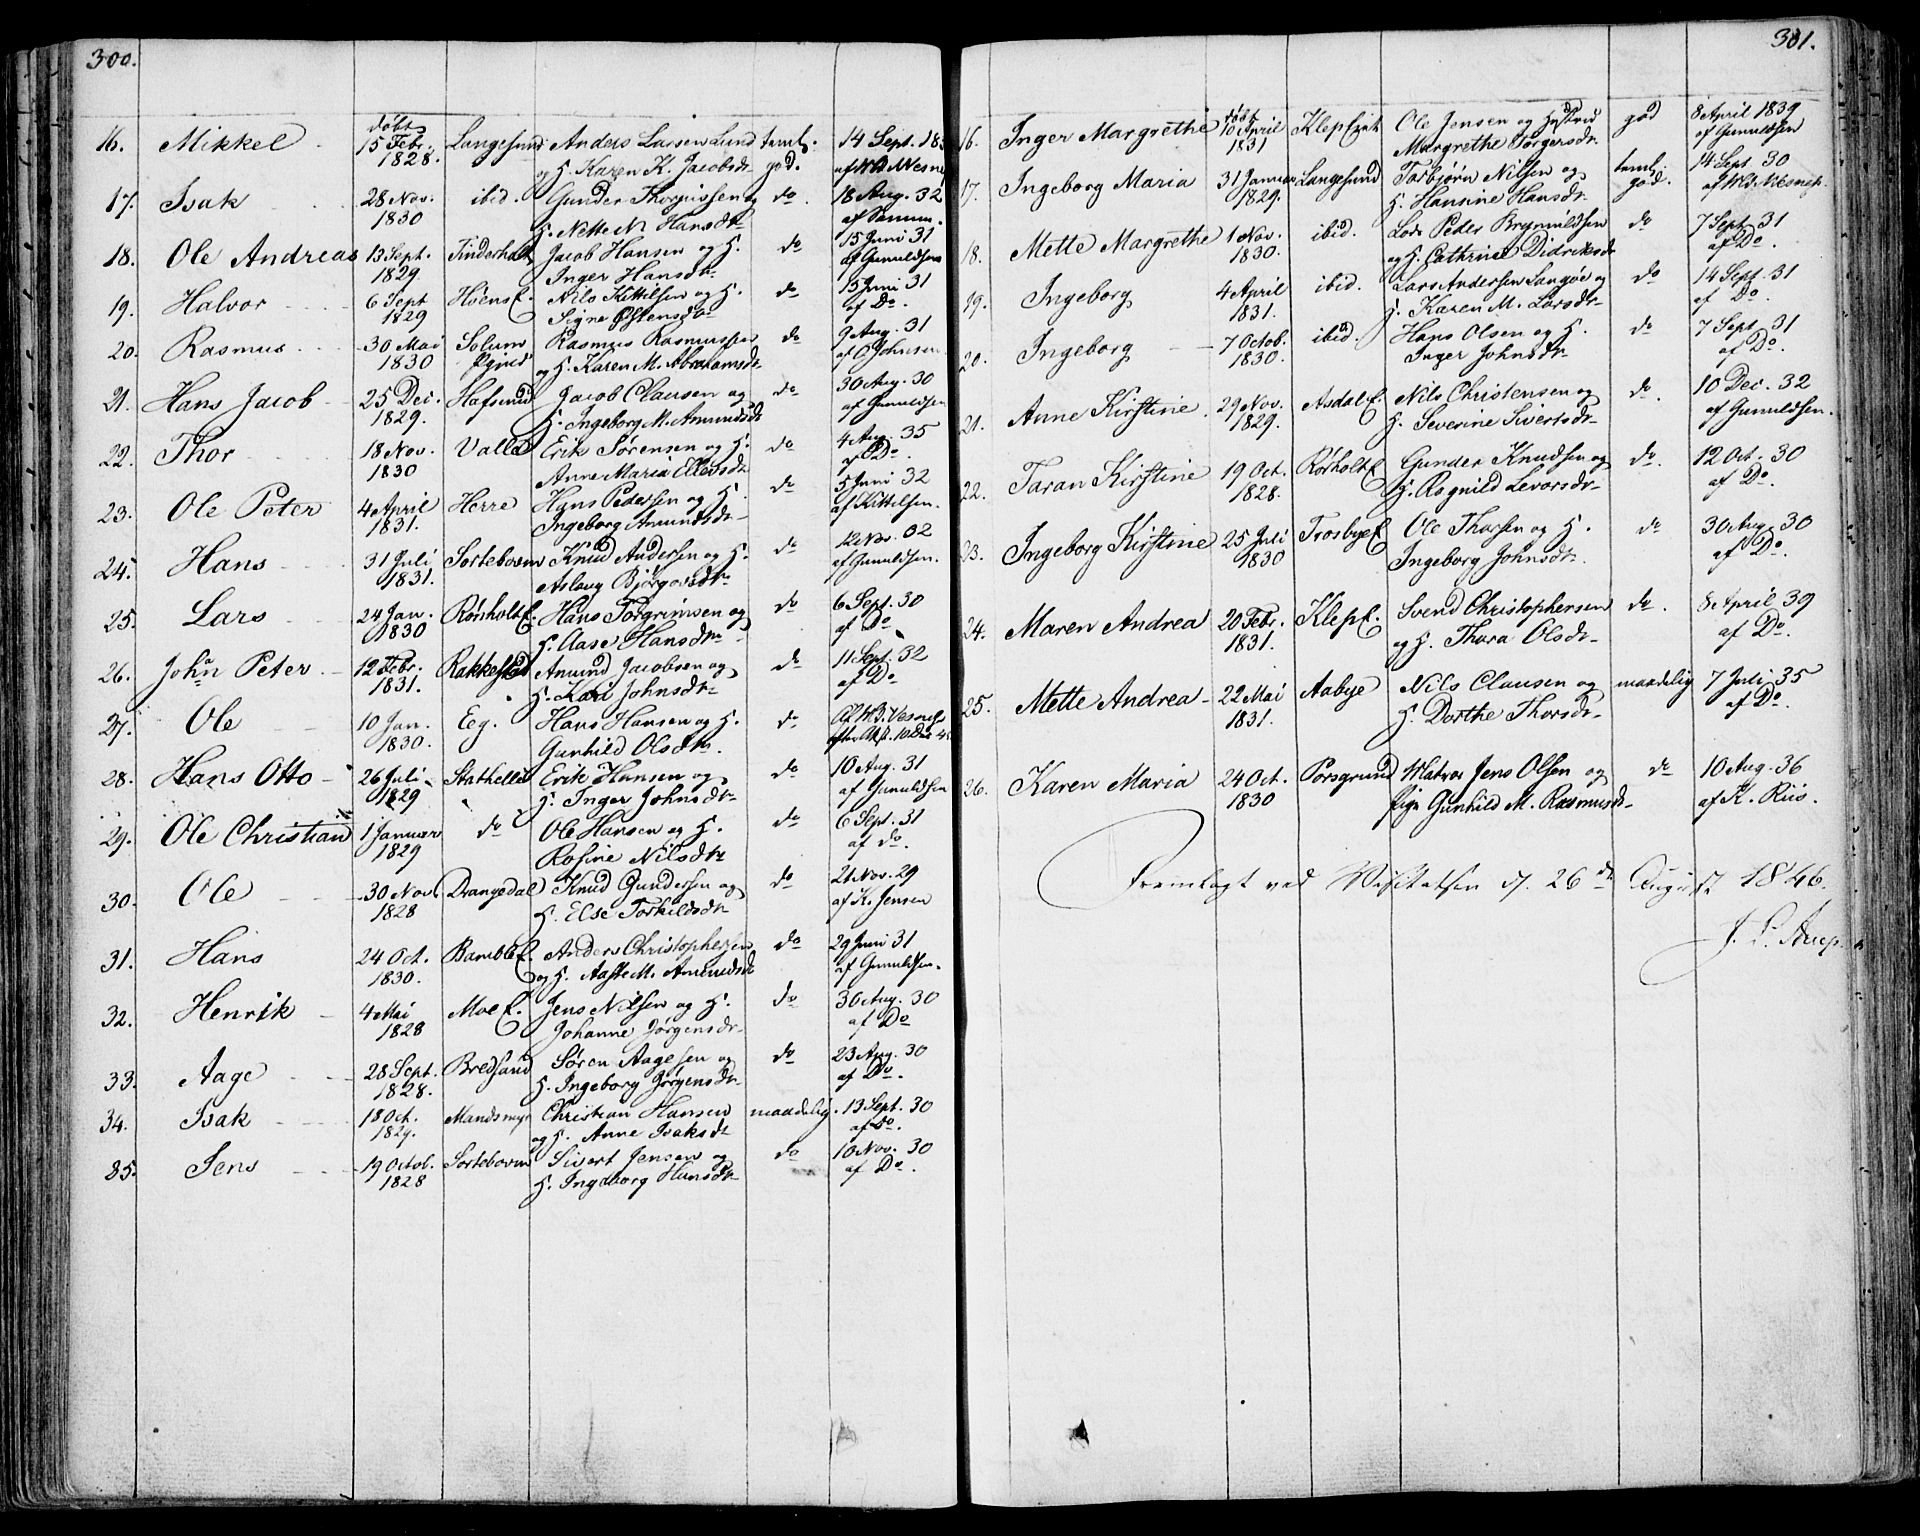 300.
16. Mikkel døbt 15 Febr. 1828. Langesund Anders Larsen Lund og H. Karen K. Jacobsdr teml. god. 14 Sept. 18
17. Isak 28 Nov. 1830 ibid. Gunder Thorjussen og H. Nette M Hansdtr do. 18 Aug. 32 af
18. Ole Andreas 13 Sept. 1829 Tinderholt Jacob Hansen og H. Inger Hansdtr do 15 Juni 31 af Gunuldsen
19. Halvor 6 Sept 1829 Høense. Nils Kittilsen og H. Signe Østensdtr do 15 Juni 31 af Do.
20. Rasmus 30 Mai 1830 Solum Pgield Rasmus Rasmussen og H. Karen M. Abrahamsdtr do 9 Aug. 31 af O Johnsen
21. Hans Jacob 25 Dec. 1829. Hafsund Jacob Clausen og H. Ingeborg M. Amundsdtr do 30 Aug. 30 af Gunuldsen
22. Thor 18 Nov. 1830 Valle Erik Sørensen og H. Anne Maria Ellevsdtr do 4 Aug. 35 af Do.
23. Ole Peter 4 April 1831. Herre Hans Pedersen og H. Ingeborg Amundsdr do 5 Juni 32 af Kittelsen.
24. Hans 31 Juli 1831. Sortebovm Knud Andersen og H. Aslaug Bjørgovsdtr do 12 Nov. 32 af Gunuldsen.
25. Lars 24 Jan. 1830 Rørholte. Hans Torgrimsen og H. Aase Hansdtr do 6 Sept. 30 af Do
26. John Peter 12 Febr. 1831. Rakkestad Amund Jacobsen og H. Kari Johnsdtr do 11 Sept. 32 af Do
27. Ole 10 Jan. 1830. Eeg. Hans Hansen og H. Gunhild Olsdtr. do
28. Hans Otto 26 Juli 1829 Stathelle Erik Hansen og H. Inger Johnsdtr do 10 Aug. 31 af Gunuldsen
29. Ole Christian 1 Januar 1829 do Ole Hansen og H. Rosine Nilsdtr do 6 Sept. 31 af do.
30. Ole 30 Nov. 1828 Drangedal Knud Gundersen og H. Else Torkildsdtr do 21 Nov. 29 af K. Jensen
31. Hans 24 Oct. 1830. Bamble. Anders Christophersen og H. Aaste M. Amundsdtr do 29 Juni 31 af Gunuldsen.
32. Henrik 4 Mai 1828 Moe. Jens Nilsen og H. Johanne Jørgensdr do 30 Aug. 30 af Do
33. Aage 28 Sept. 1828. Bredsand Søren Aagesen og H. Ingeborg Jørgensdr do 23 Aug. 30 af Do.
34. Isak 18 Oct. 1829. Mandsmyr Christian Hansen og H. Anne Isaksdr maadelig. 13 Sept. 30 af Do.
35. Jens 19 Octob. 1828 Sortebovm Sivert Jensen og H. Ingeborg Hansdtr do 10 Nov. 30 af Do.
301.
16. Inger Margrethe døbt 10 April 1831 Ole Jensen og Hustru Margrethe Torgersdr god 8 April 1839 af Gunuldsen
17. Ingeborg Maria 31 Januar 1829. Langesund Torbjørn Nilsen og H. Hansine Hansdr. teml. god. 14 Sept 30
18. Mette Margrethe 1 Nov. 1830. ibid. Lods Peder Brynnildsen og H. Cathrine Didriksdr do 7 Sept. 31 af Do.
19. Ingeborg 4 April 1831. ibid. Lars Andersen Langøe og H. Karen M. Larsdr do 14 Sept. 31 af Do.
20. Ingeborg 7 Octob. 1830. ibid. Hans Olsen og H. Inger Johnsdr do 7 Sept. 31 af Do.
21. Anne Kirstine. 29 Nov. 1829. Asdale Nils Christensen og H. Severine Sivertsdr do. 10 Dec. 32 af Gunuldsen.
22. Taran Kirstine 19 Oct. 1828. Rørholte Gunder Knudsen og H. Ragnild Levorsdr do. 12 Oct. 30 af Do.
23. Ingeborg Kirstine 25 Juli 1830 Trosbye Ole Thorsen og H. Ingeborg Johnsdr. do 30 Aug. 30 af Do.
24. Maren Andrea 20 Febr. 1831. Klep. Svend Christophersen og H. Thora Olsdr do. 8 April 39 af Do.
25. Mette Andrea 22 Mai 1831. Aabye Nils Clausen og H. Dorthe Thorsdr maadelig 7 Juli 35 af Do.
26. Karen Maria 24 Oct. 1830 Porsgrund Matros Jens Olsen og pige Gunhild M. Rasmusdr do 10 Aug. 36 af K. Riis.
Fremlagt ved Visitatsen d. 26de August 1846.